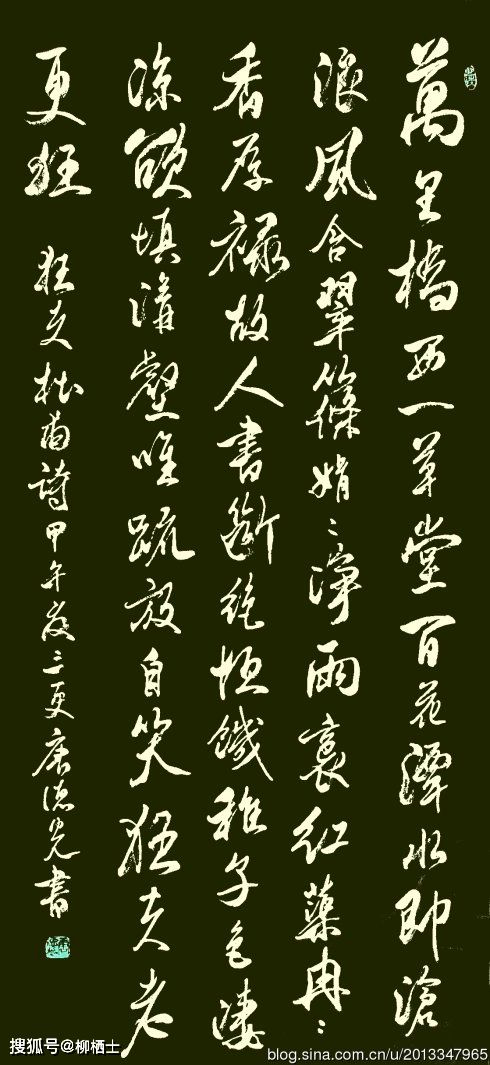 萬里橋西一草堂百花潭水即滄
浪風含翠篠娟〻淨雨裛紅蕖冉〻
香厚祿故人書斷絕恆饑稚子色淒
涼欲填溝壑唯疏放自笑狂夫老
更狂 狂夫杜甫詩甲午夜三更光書
搜狐号@柳栖士
blog.sina.com.cn/u/2013347965